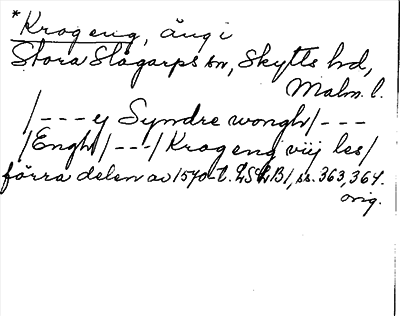 *Krog eng, äng i
Stora Slågarps sn, Skytts hd,
Malm. l.
/--- ej Syndre wongh/---
/Engh/---/Krog eng viij les/
förra delen av 1570-t. LSLB1, ss. 363, 364.
orig.